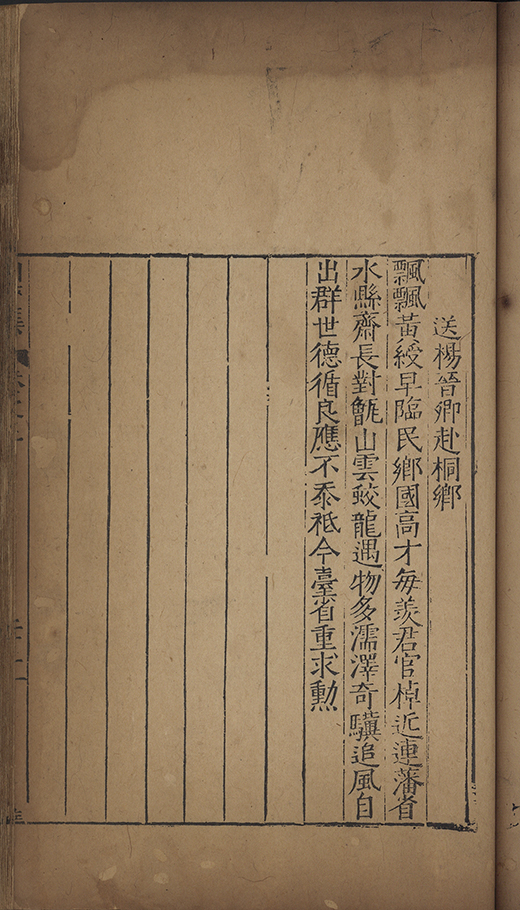 送楊晉卿赴桐鄉
飄飄黃綬早臨民鄉國高才每羨君官棹近連藩省
水縣齋長對甑山雲蛟龍遇物多濡澤奇驥追風自
出群世德循良應不忝祗今臺省重求勲